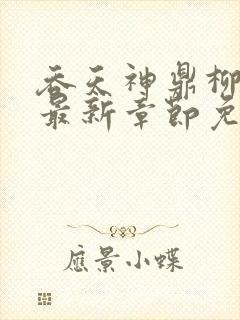 吞天神鼎柳
最新章节免
應景小蝶